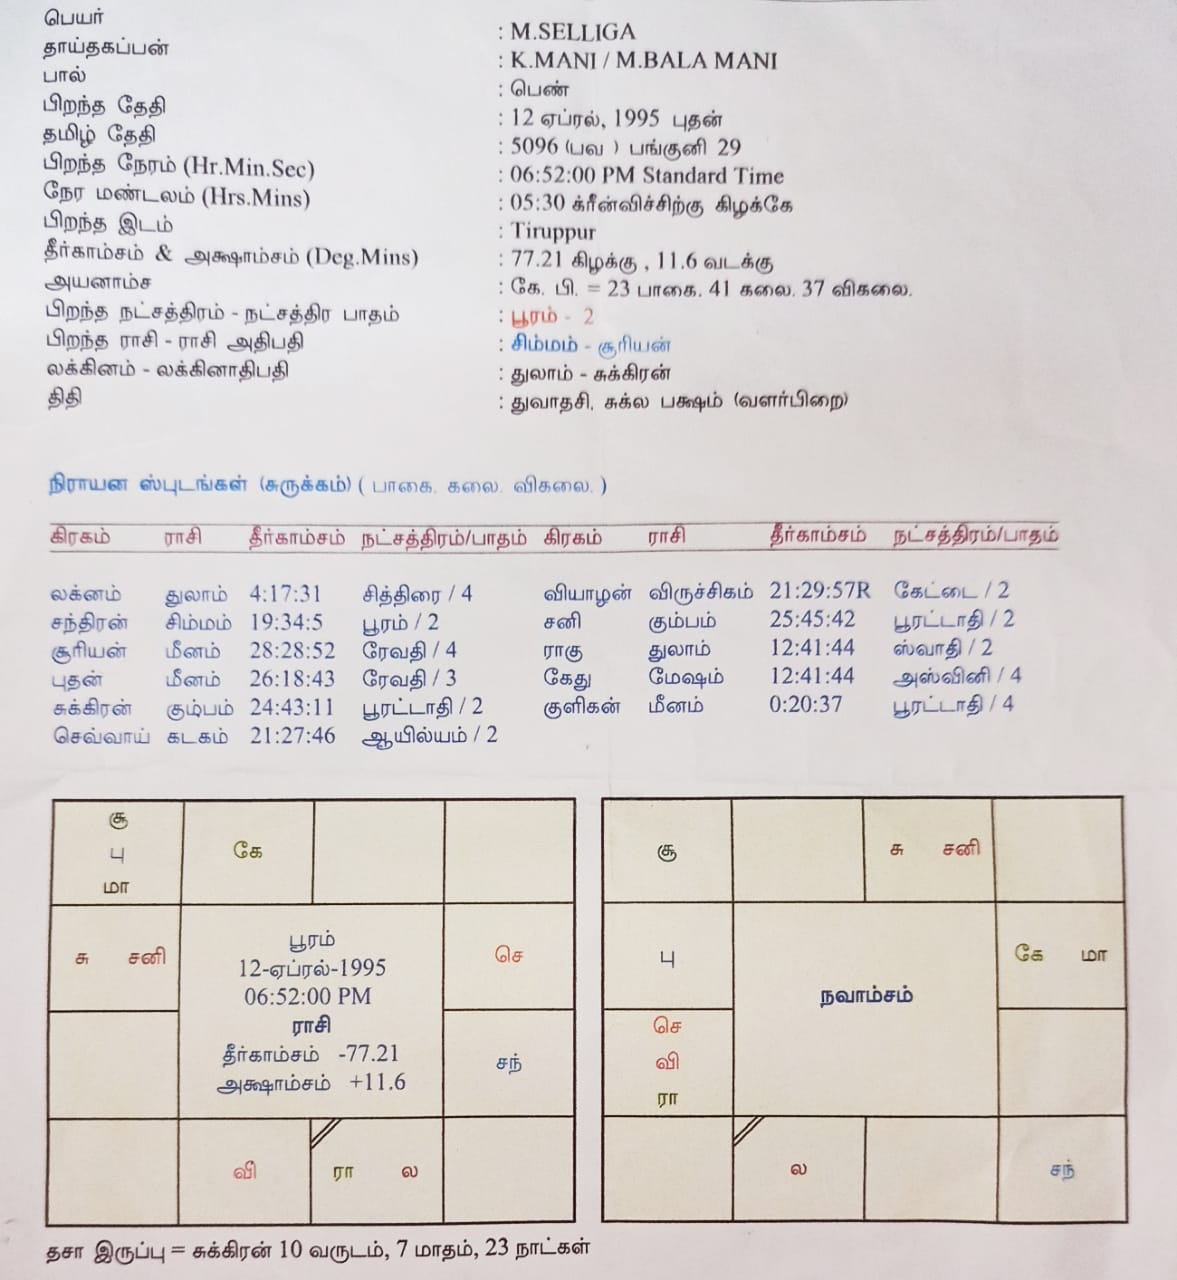 பெயர் : M.SELLIGA
தாய்தகப்பன் : K.MANI / M.BALA MANI
பால் : பெண்
பிறந்த தேதி : 12 ஏப்ரல், 1995 புதன்
தமிழ் தேதி : 5096 (பவ ) பங்குனி 29
பிறந்த நேரம் (Hr.Min.Sec) : 06:52:00 PM Standard Time
நேர மண்டலம் (Hrs.Mins) : 05:30 க்ரீன்விச்சிற்கு கிழக்கே
பிறந்த இடம் : Tiruppur
தீர்காம்சம் & அக்ஷாம்சம் (Deg.Mins) : 77.21 கிழக்கு , 11.6 வடக்கு
அயனாம்ச : கே. பி. = 23 பாகை. 41 கலை. 37 விகலை.
பிறந்த நட்சத்திரம் - நட்சத்திர பாதம் : பூரம் - 2
பிறந்த ராசி - ராசி அதிபதி : சிம்மம் - சூரியன்
லக்கினம் - லக்கினாதிபதி : துலாம் - சுக்கிரன்
திதி : துவாதசி, சுக்ல பக்ஷம் (வளர்பிறை)
நிராயன ஸ்புடங்கள் (சுருக்கம்) ( பாகை. கலை. விகலை. )
கிரகம் ராசி தீர்காம்சம் நட்சத்திரம்/பாதம் கிரகம் ராசி தீர்காம்சம் நட்சத்திரம்/பாதம்
லக்னம் துலாம் 4:17:31 சித்திரை / 4 வியாழன் விருச்சிகம் 21:29:57R கேட்டை / 2
சந்திரன் சிம்மம் 19:34:5 பூரம் / 2 சனி கும்பம் 25:45:42 பூரட்டாதி / 2
சூரியன் மீனம் 28:28:52 ரேவதி / 4 ராகு துலாம் 12:41:44 ஸ்வாதி / 2
புதன் மீனம் 26:18:43 ரேவதி / 3 கேது மேஷம் 12:41:44 அஸ்வினி / 4
சுக்கிரன் கும்பம் 24:43:11 பூரட்டாதி / 2 குளிகன் மீனம் 0:20:37 பூரட்டாதி / 4
செவ்வாய் கடகம் 21:27:46 ஆயில்யம் / 2
சூ
பு
மா
கே
சு சனி
பூரம்
12-ஏப்ரல்-1995
06:52:00 PM
ராசி
தீர்காம்சம் -77.21
அக்ஷாம்சம் +11.6
செ
சந்
வி
ரா ல
சூ
சு சனி
பு
நவாம்சம்
கே மா
செ
வி
ரா
ல
சந்
தசா இருப்பு = சுக்கிரன் 10 வருடம், 7 மாதம், 23 நாட்கள்